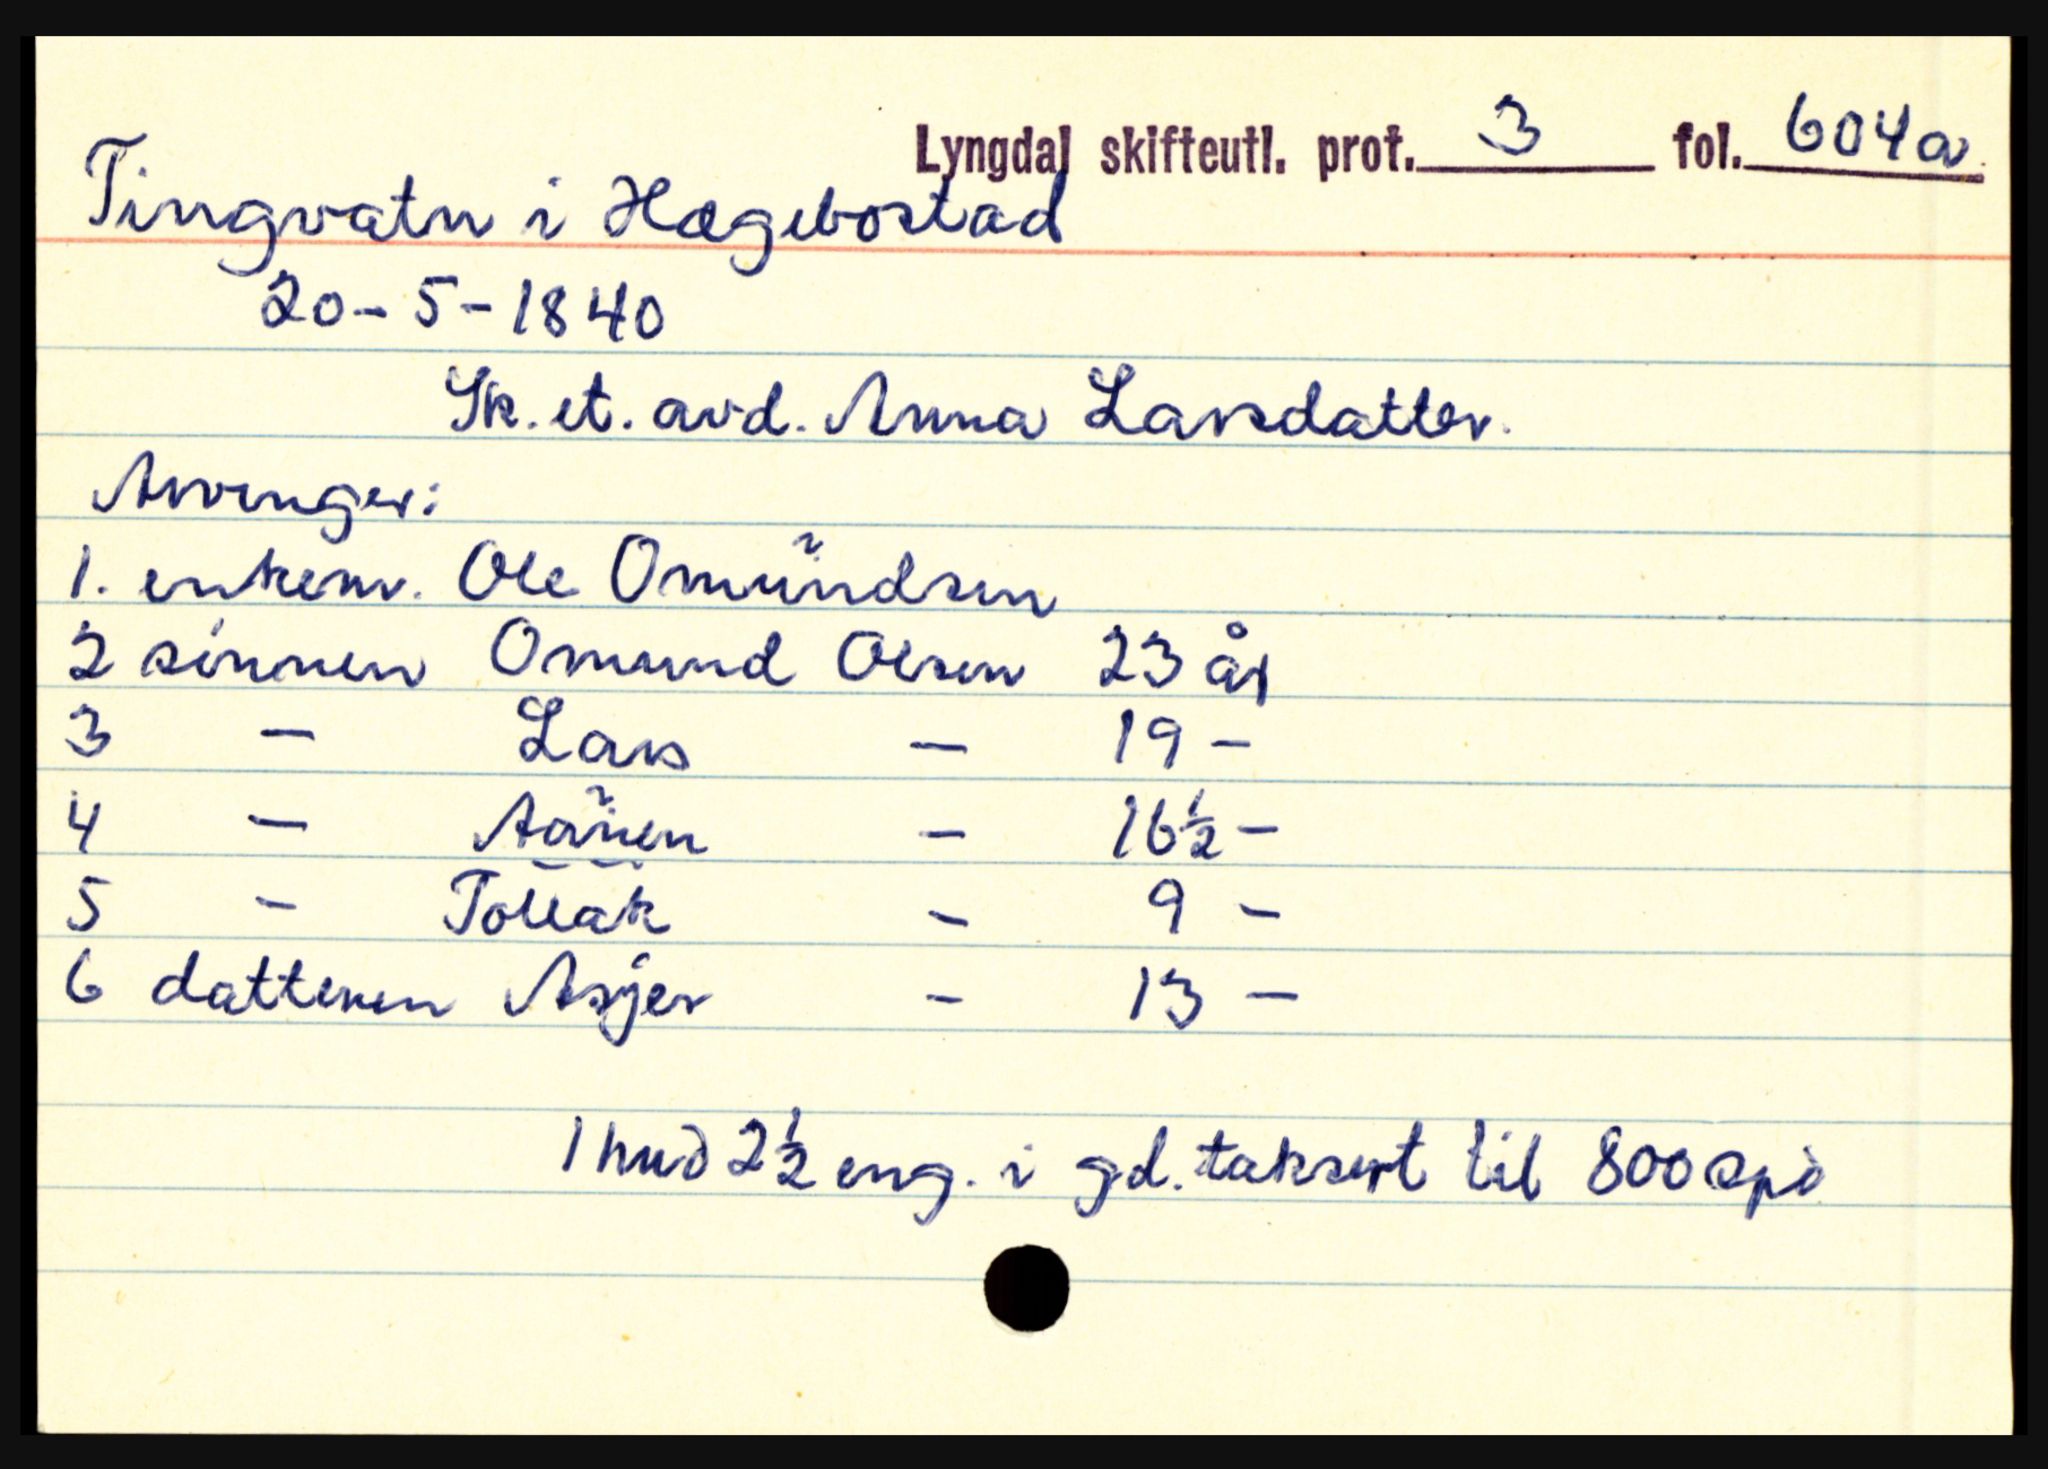 Lyngdal skifteutl. prot. 3 fol. 604a
Tingvatn i Hægebostad
20-5-1840
Sk. et. avd. Anna Larsdatter.
Arvinger:
1. enkem. Ole Omundsen
2 sønnen Omund Olsen 23 år
3 - Lars - 19 -
4 - Aanen - 16½ -
5 - Tollak - 9 -
6 datteren Asjer - 13 -
1 hud 2½ eng. i gd. taksert til 800 spd